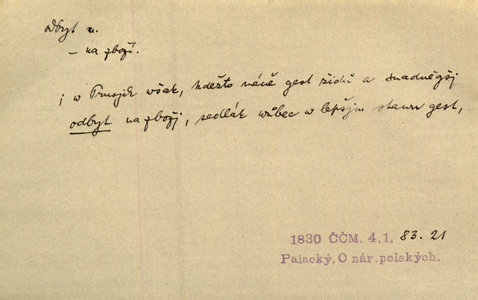 odbyt m.
– na zbožj.
i w Prusjch wšak, kdežto méně gest židů a snadněgšj
odbyt na zbožj, sedlák wůbec w lepšjm stawu gest,
1830 ČČM. 4,1, 83. 21
Palacký, O nár. polských.